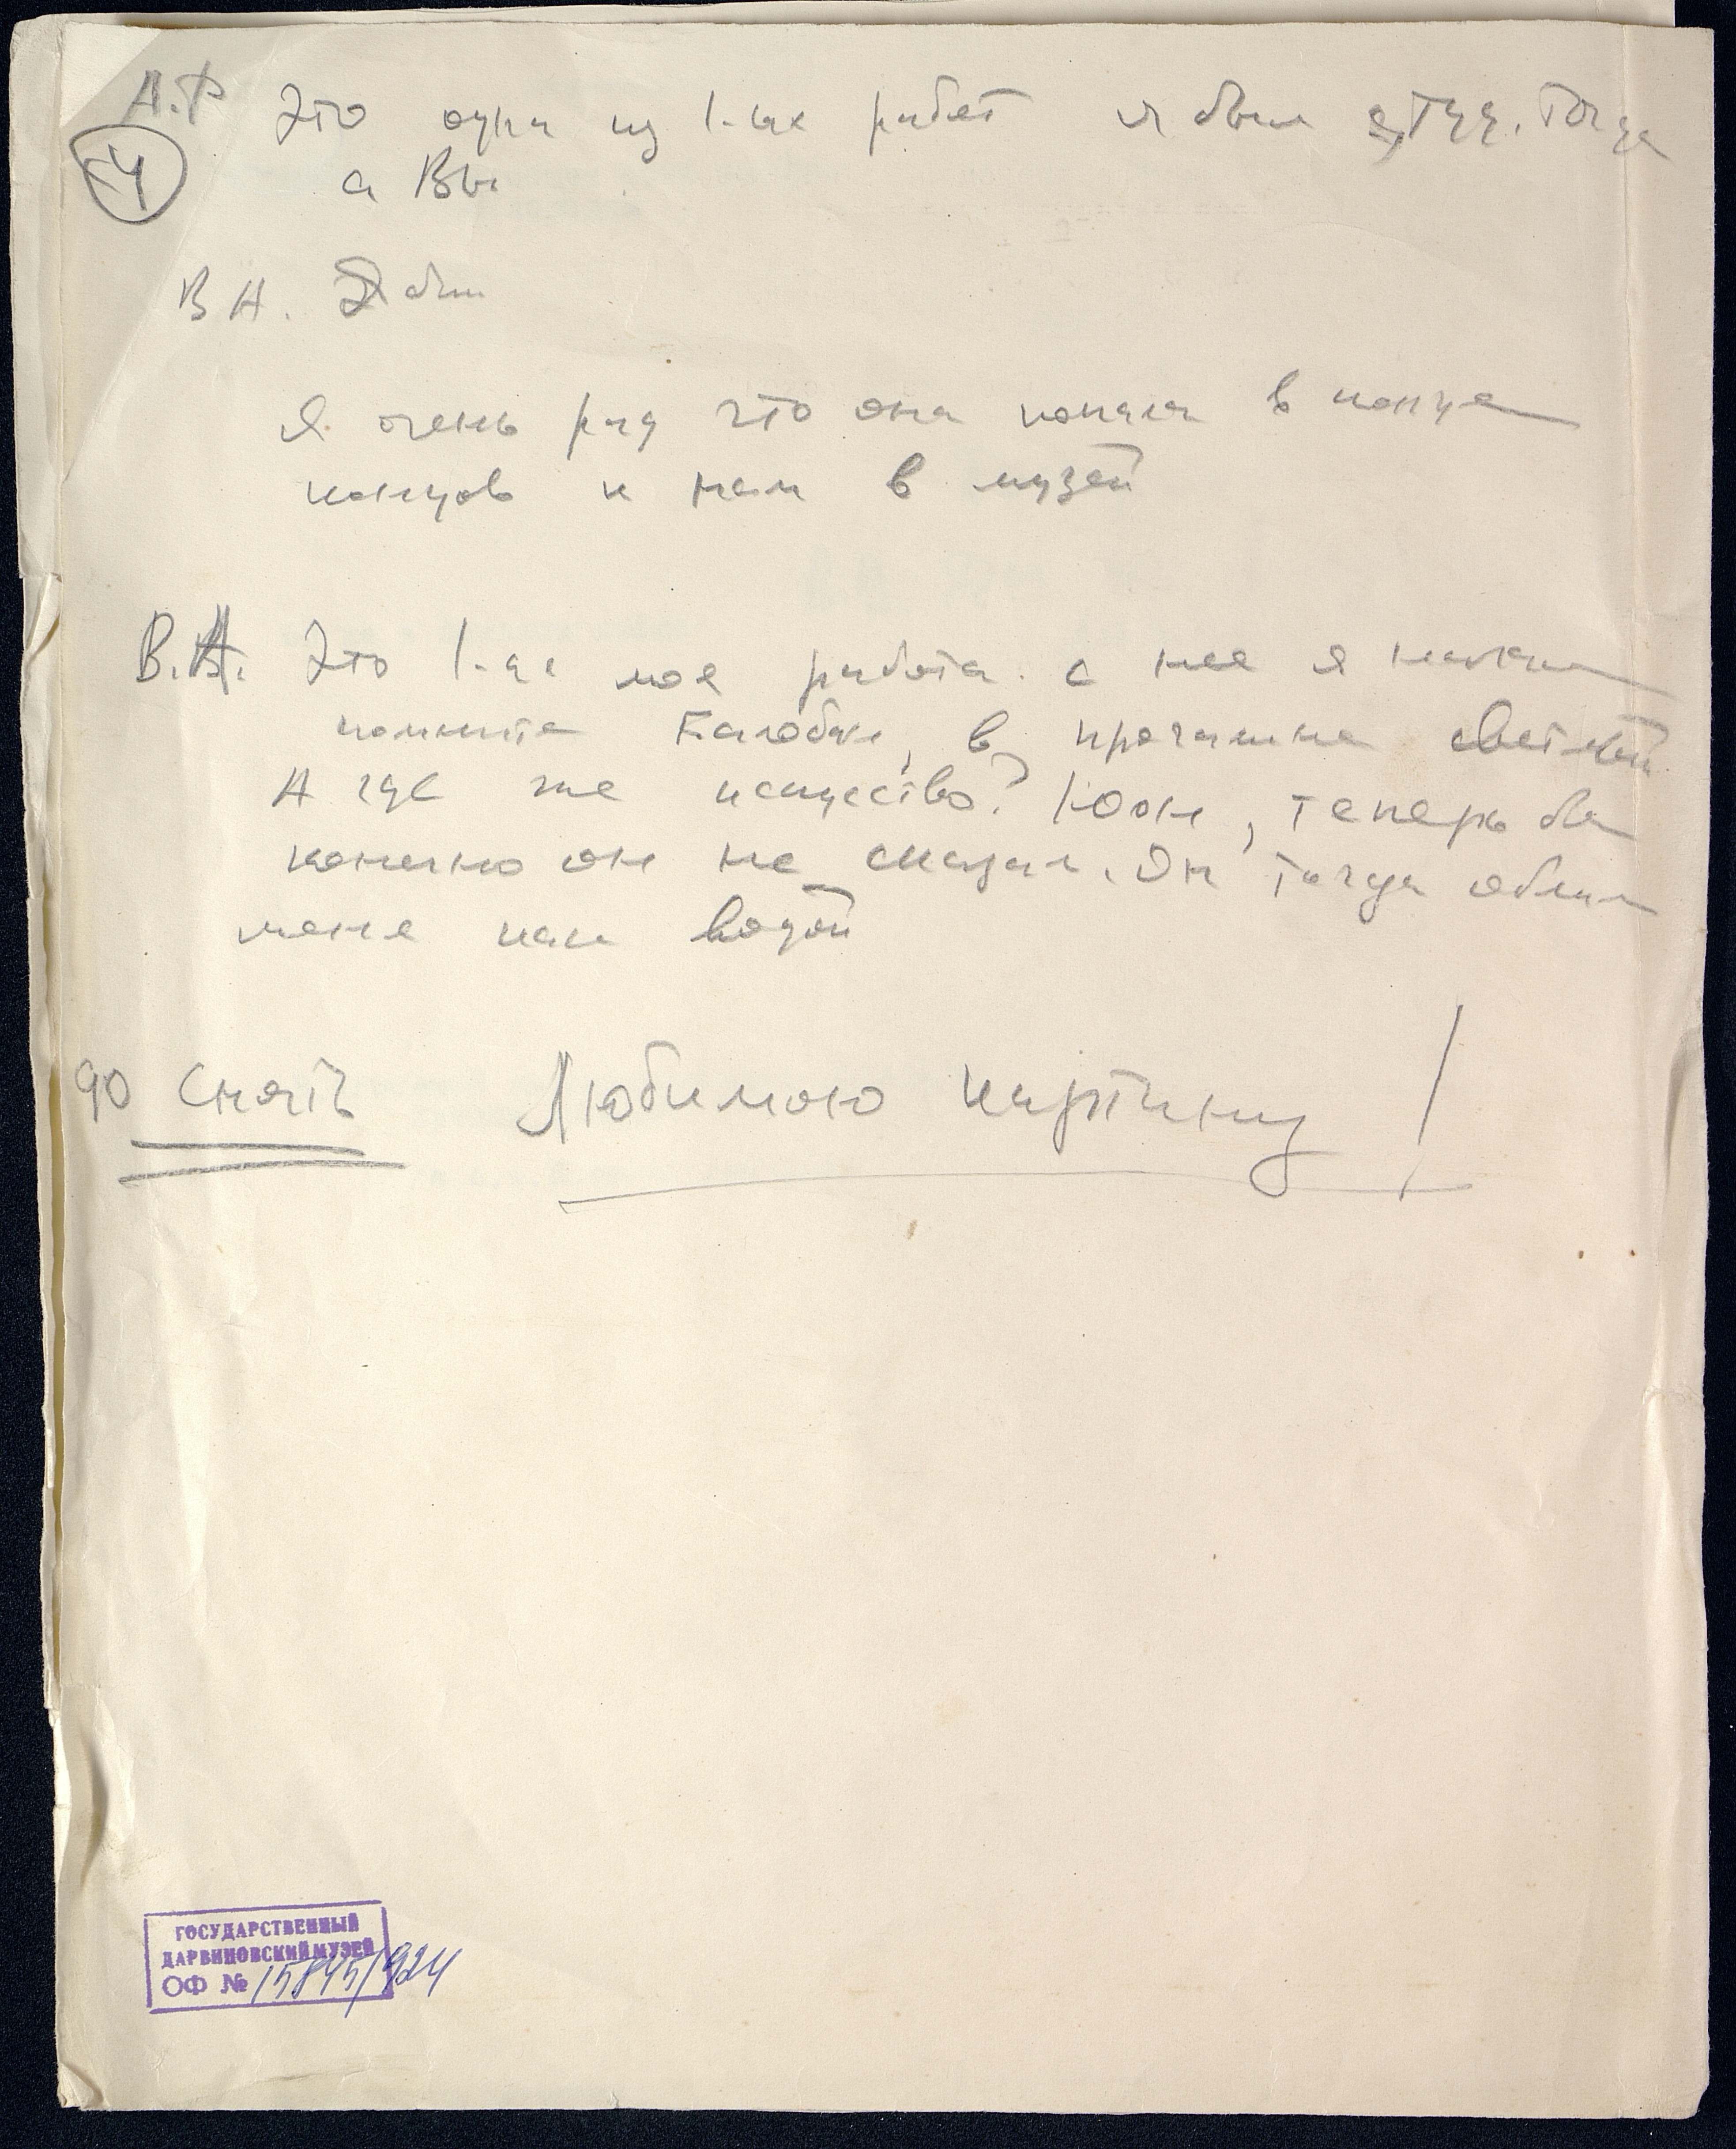 А.Ф Это одна из 1-ых работ я был студ. тогда
4
а Вы
В А. Я был
Я очень рад что она попала в конце
концов к нам в музей
В.А. Это 1-ая моя работа. с нее я начал
помните в
А где же искусство? Юон, теперь бы
конечно он не сказал. Он тогда облил
меня как водой
90 Снять Любимою картину !
ГОСУДАРСТВЕННЫЙ
ДАРВИНОВСКИЙ МУЗЕЙ
ОФ № 15845/924